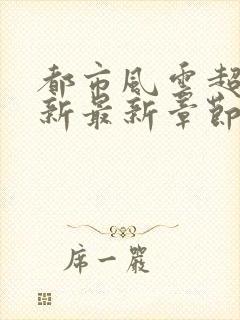 都市風雲超
新最新章節
席一嚴